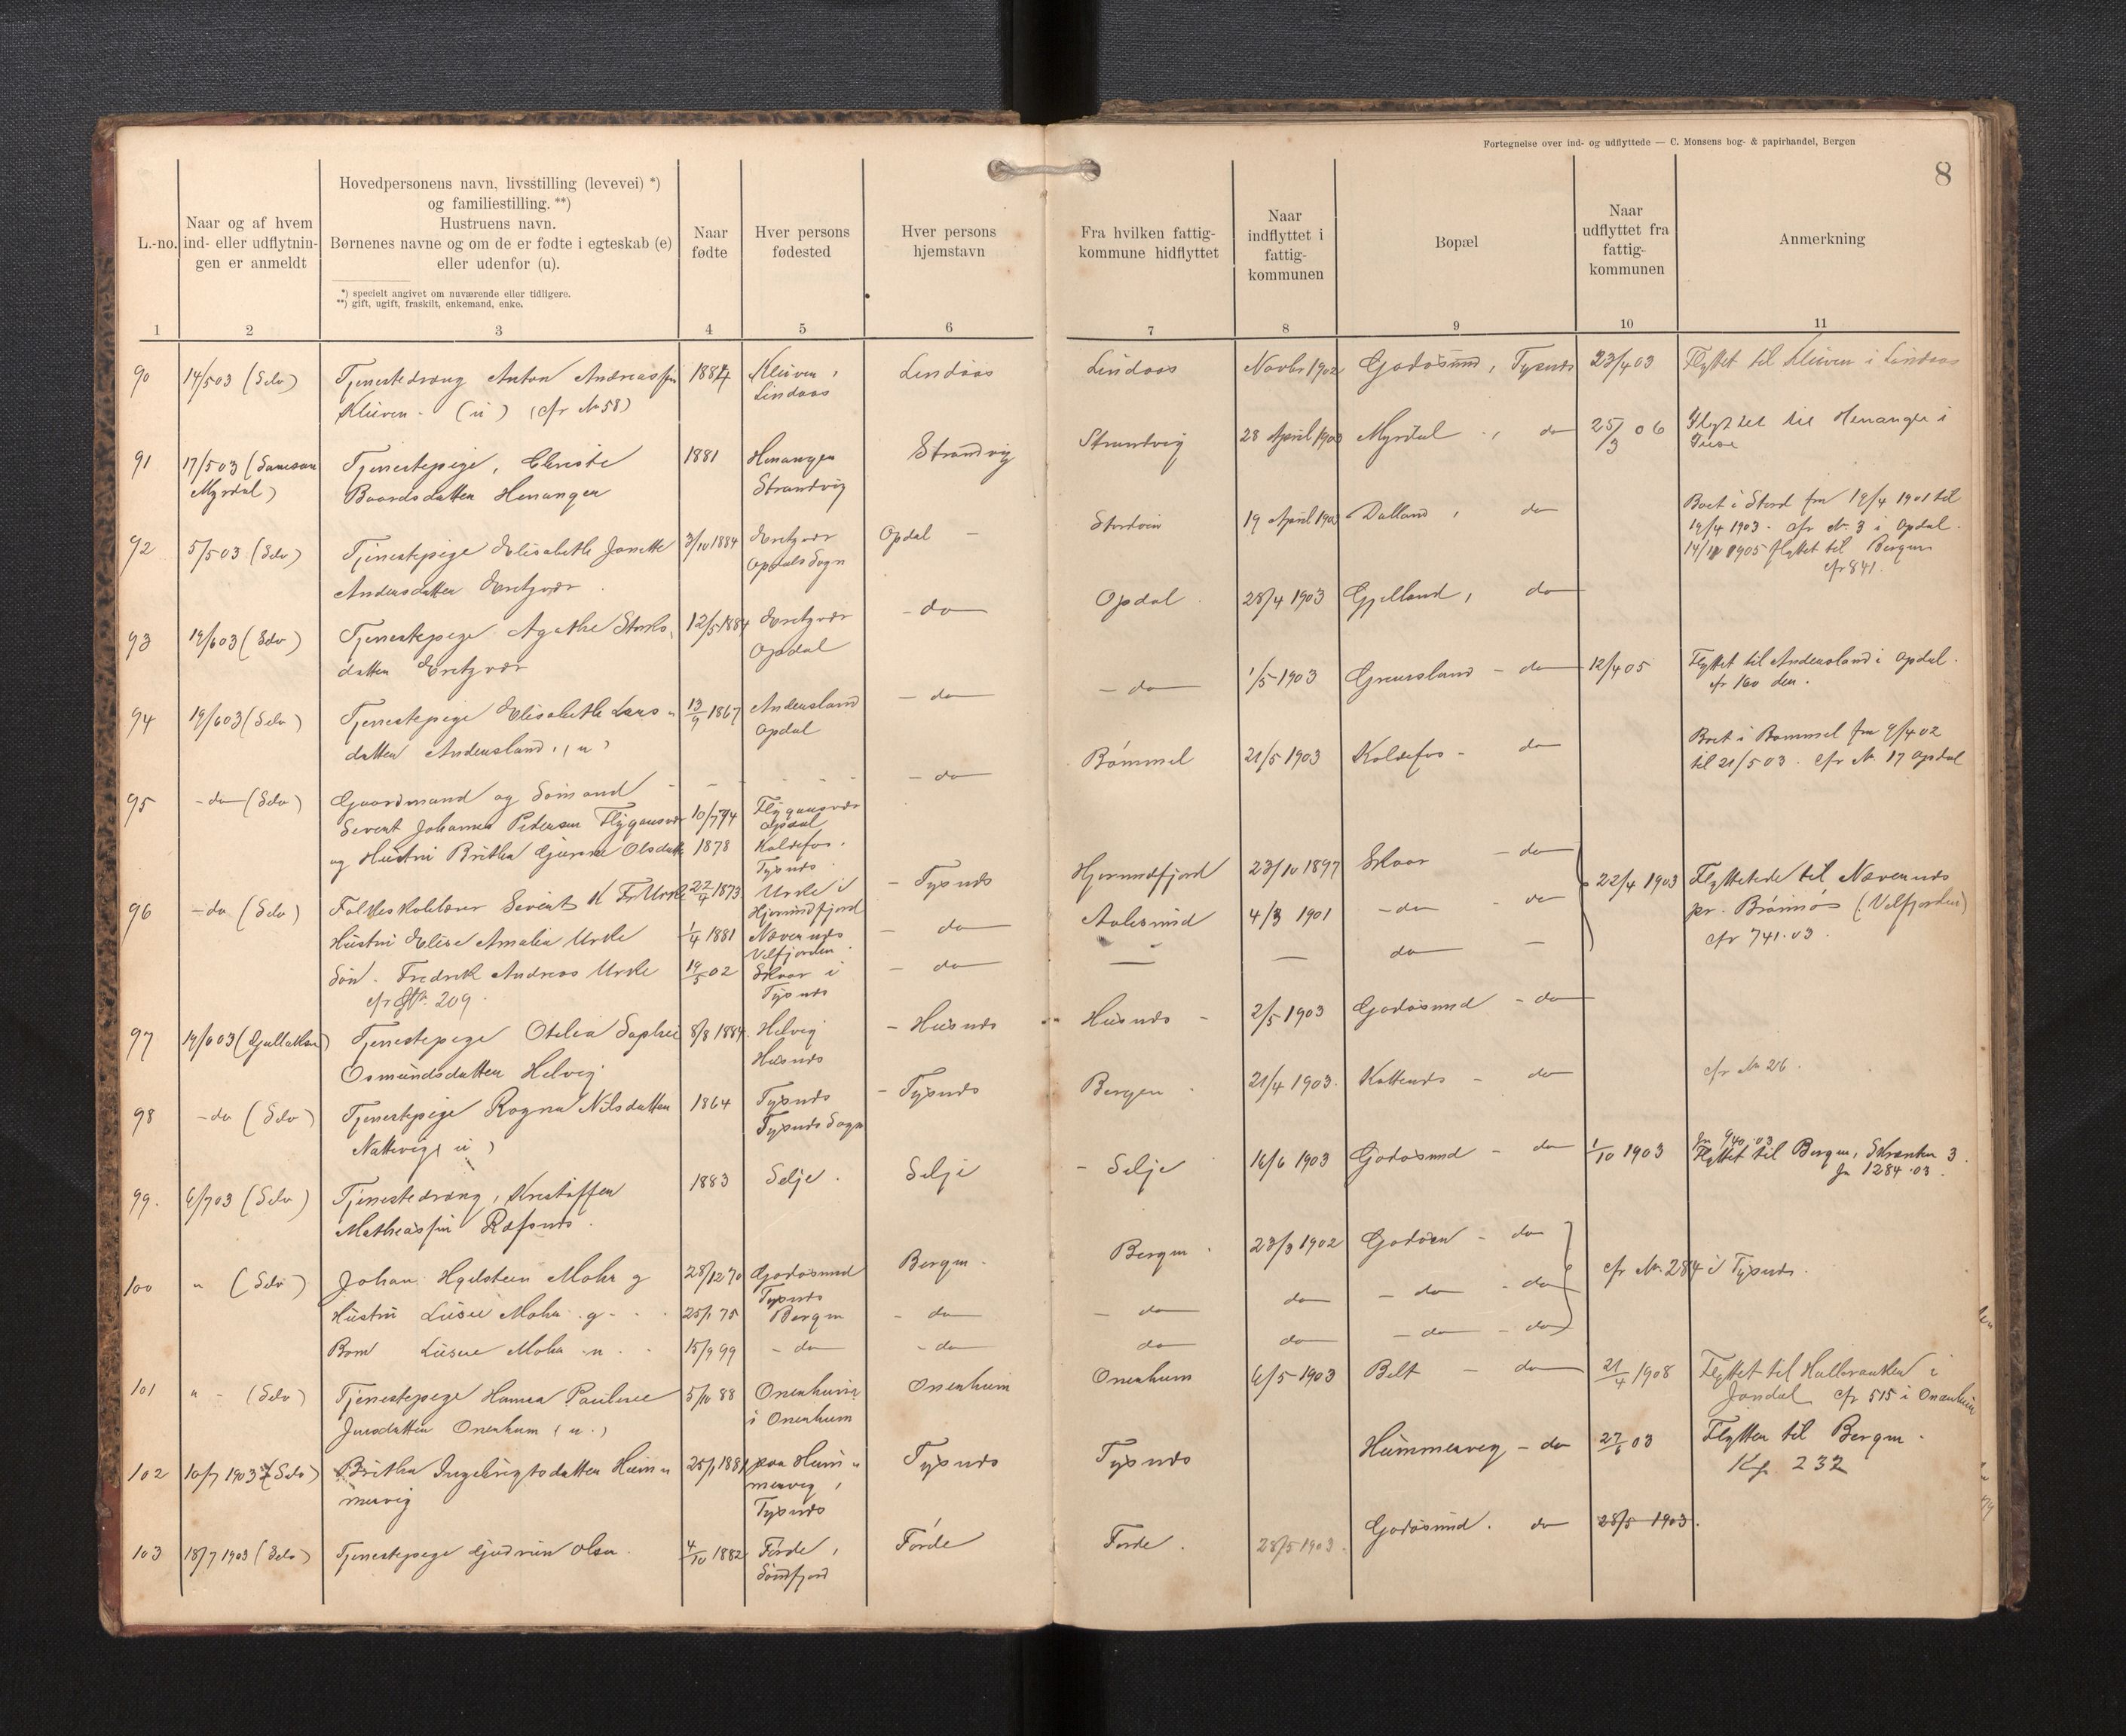 Fortegnelse over ind- og udflyttede — C. Monsens bog- & papirhandel, Bergen
8
L.-no.
Naar og af hvem
ind- eller udflytnin-
gen er anmeldt
Hovedpersonens navn, livsstilling (levevei) *)
og familiestilling. **)
Hustruens navn.
Børnenes navne og om de er fødte i egteskab (e)
eller udenfor (u).
*) specielt angivet om nuværende eller tidligere.
**) gift, ugift, fraskilt, enkemand, enke.
Naar
fødte
Hver persons
fødested
Hver persons
hjemstavn
Fra hvilken fattig-
kommune hidflyttet
Naar
indflyttet i
fattig-
kommunen
Bopæl
Naar
udflyttet fra
fattig-
kommunen
Anmerkning
1 2 3 4 5 6 7 8 9 10 11
90 14/5 03 (Selv) Tjenestedreng Anton Andreassen 1884 Kleiven, Lindaas Lindaas Novbr 1902 Godøsund, Tysnes 23/4 03 Flyttet til Kleiven i Lindaas
Kleiven - (u) (cfr No 58) Lindaas
91 17/5 03 (Samson Tjenestepige, Christe 1881 Henanger Strandvig Strandvig 28 April 1903 Myrdal, do 25/3 06 Flyttet til Henanger i
Myrdal) Baardsdatter Henanger Strandvig Fuse
92 5/5 03 (Selv) Tjenestepige Elisabeth Janette 3/10 1884 Opdal Stordøen 19 April 1903 Dalland, do Boet i Stord fra 19/4 1901 til
Andersdatter Opdals Sogn 19/4 1903 - cfr No 3 i Opdal.
14/11 1905 flyttet til Bergen
cfr 841.
93 19/6 03 (Selv) Tjenestepige Agathe 12/5 1884 - do Opdal 28/4 1903 Gjelland, do
datter Opdal
94 19/6 03 (Selv) Tjenestepige Elisabeth Lars- 13/9 1867 Andersland - do - do 1/5 1903 - do 12/4 05 Flyttet til Andersland i Opdal.
datter Andersland (u) Opdal cfr 160 der.
95 - do (Selv) Gaardmand og Sømand - do Bømmel 21/5 1903 Koldefos - do Boet i Bømmel fra 9/4 02
Sevent Johannes Petersen Flygansvær 10/7 74 Flygansvær Opdal til 21/5 03. cfr No 17 Opdal
og Hustru Britha Gjurine Olsdatter 1878 Koldefos,
Tysnes
96 - do (Selv) Folkeskolelærer Sevent K Fr Urke 22/4 1873 Urke i - Tysnes Hjørundfjord 23/10 1897 Skaar - do 22/4 1903 Flyttede til Nævernes
Hjørundfjord
Hustru Elise Amalia Urke 1/4 1881 Nævernes - do Aalesund 4/3 1901 - do - do pr. Brønnøs (Velfjorden)
Velfjorden cfr 741.03.
Søn. Fredrik Andreas Urke 19/5 02 Skaar i - do — — do —
cfr No. 209. Tysnes
97 19/6 03 Tjenestepige Otelia Sophie 8/8 1884 Helvig - Husnes Husnes - 2/5 1903 Godøsund - do
Osmundsdatter Helvig Husnes
98 - do (Selv) Tjenestepige Ragna Nilsdatter 1864 Tysnes - Tysnes Bergen 21/4 1903. - do cfr No 26.
Nattevig (u) Tysnes Sogn
99. 6/7 03 (Selv) Tjenestedreng, Kristoffer 1883 Selje. Selje - Selje 16/6 1903 Godøsund - do 1/10 1903 Jn 940.03
Mathiassen Flyttet til Bergen, Skranten 3.
Jn 1284.03.
100 " (Selv) Johan Hgelsteen Mohr g 28/12 70 Godøsund Bergen. Bergen. 23/3 1902 Godøen - do cfr No. 284 i Tysnes.
Tysnes
Hustru Luise Mohr g - 25/1 75 Bergen - do - do do - do - do
Barn Luise Mohr u. 15/9 99 - do - do do do - do - do
101 " - (Selv) Tjenestepige Hanna Pauline 5/10 88 Onenheim Onenheim Onenheim 6/5 1903 Belt - do 21/4 1908 Flyttet til i
datter Onenheim (u.) i Onenheim Jondal cfr 515 i Onenheim
102 10/7 1903 (Selv) Britha Ingebrigtsdatter Hum- 25/1 1881 paa Hum- Tysnes Tysnes Hummervig - do 27/6 03 Flytter til Bergen.
mervig mervig, 232
Tysnes
103 18/7 1903 (Selv) Tjenestepige Gudrun Olsen. 4/10 1882 Førde, Førde Førde. 28/5 1903. Godøsund. do 28/5 1903.
Søndfjord